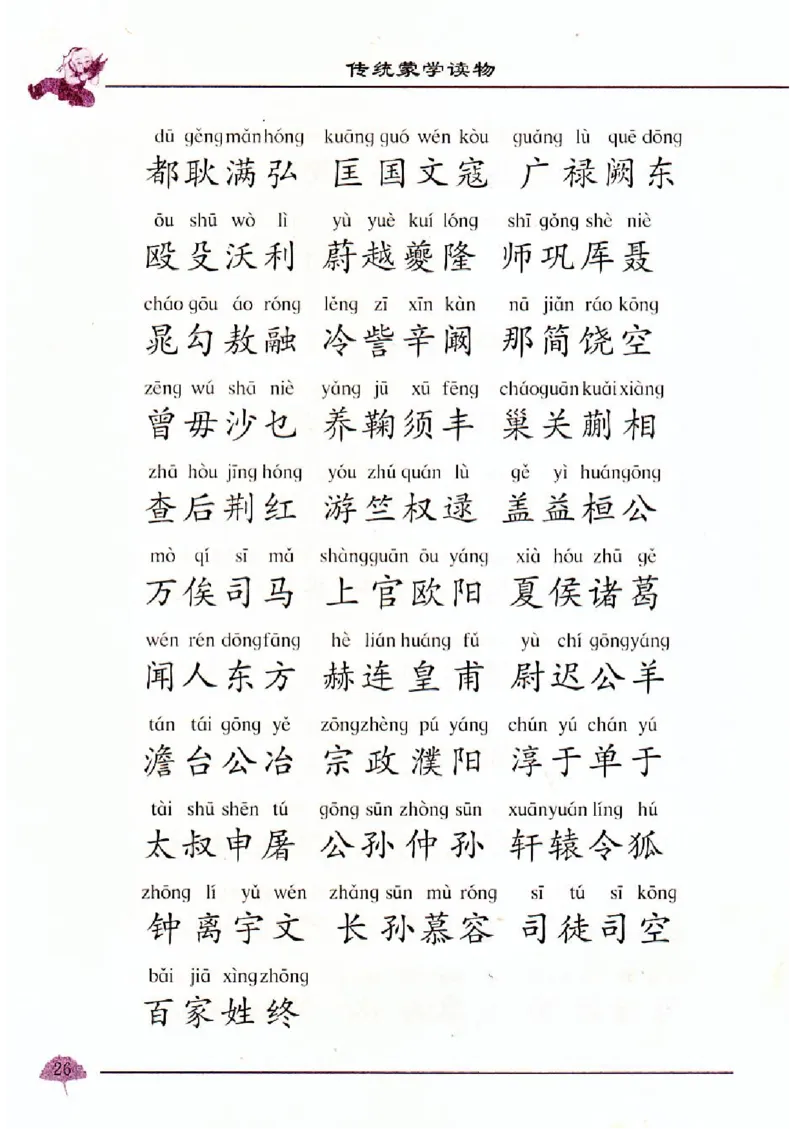 传统蒙学读物
dū gěng mǎn hóng kuāng guó wén kòu guǎng lù quē dōng
都耿满弘 匡国文寇 广禄阙东
ōu shū wò lì yù yuè kuí lóng shī gǒng shè niè
殴殳沃利 蔚越夔隆 师巩厍聂
cháo gōu áo róng lěng zī xīn kàn nā jiǎn ráo kōng
晁勾敖融 冷訾辛阚 那简饶空
zēng wú shā niè yǎng jū xū fēng cháo guān kuǎi xiàng
曾毋沙乜 养鞠须丰 巢关蒯相
zhā hòu jīng hóng yóu zhú quán lù gě yì huán gōng
查后荆红 游竺权逯 盖益桓公
mò qí sī mǎ shàng guān ōu yáng xià hóu zhū gě
万俟司马 上官欧阳 夏侯诸葛
wén rén dōng fāng hè lián huáng fǔ yù chí gōng yáng
闻人东方 赫连皇甫 尉迟公羊
tán tái gōng yě zōng zhèng pú yáng chún yú chán yú
澹台公冶 宗政濮阳 淳于单于
tài shū shēn tú gōng sūn zhòng sūn xuān yuán líng hú
太叔申屠 公孙仲孙 轩辕令狐
zhōng lí yǔ wén zhǎng sūn mù róng sī tú sī kōng
钟离宇文 长孙慕容 司徒司空
bǎi jiā xìng zhōng
百家姓终
26